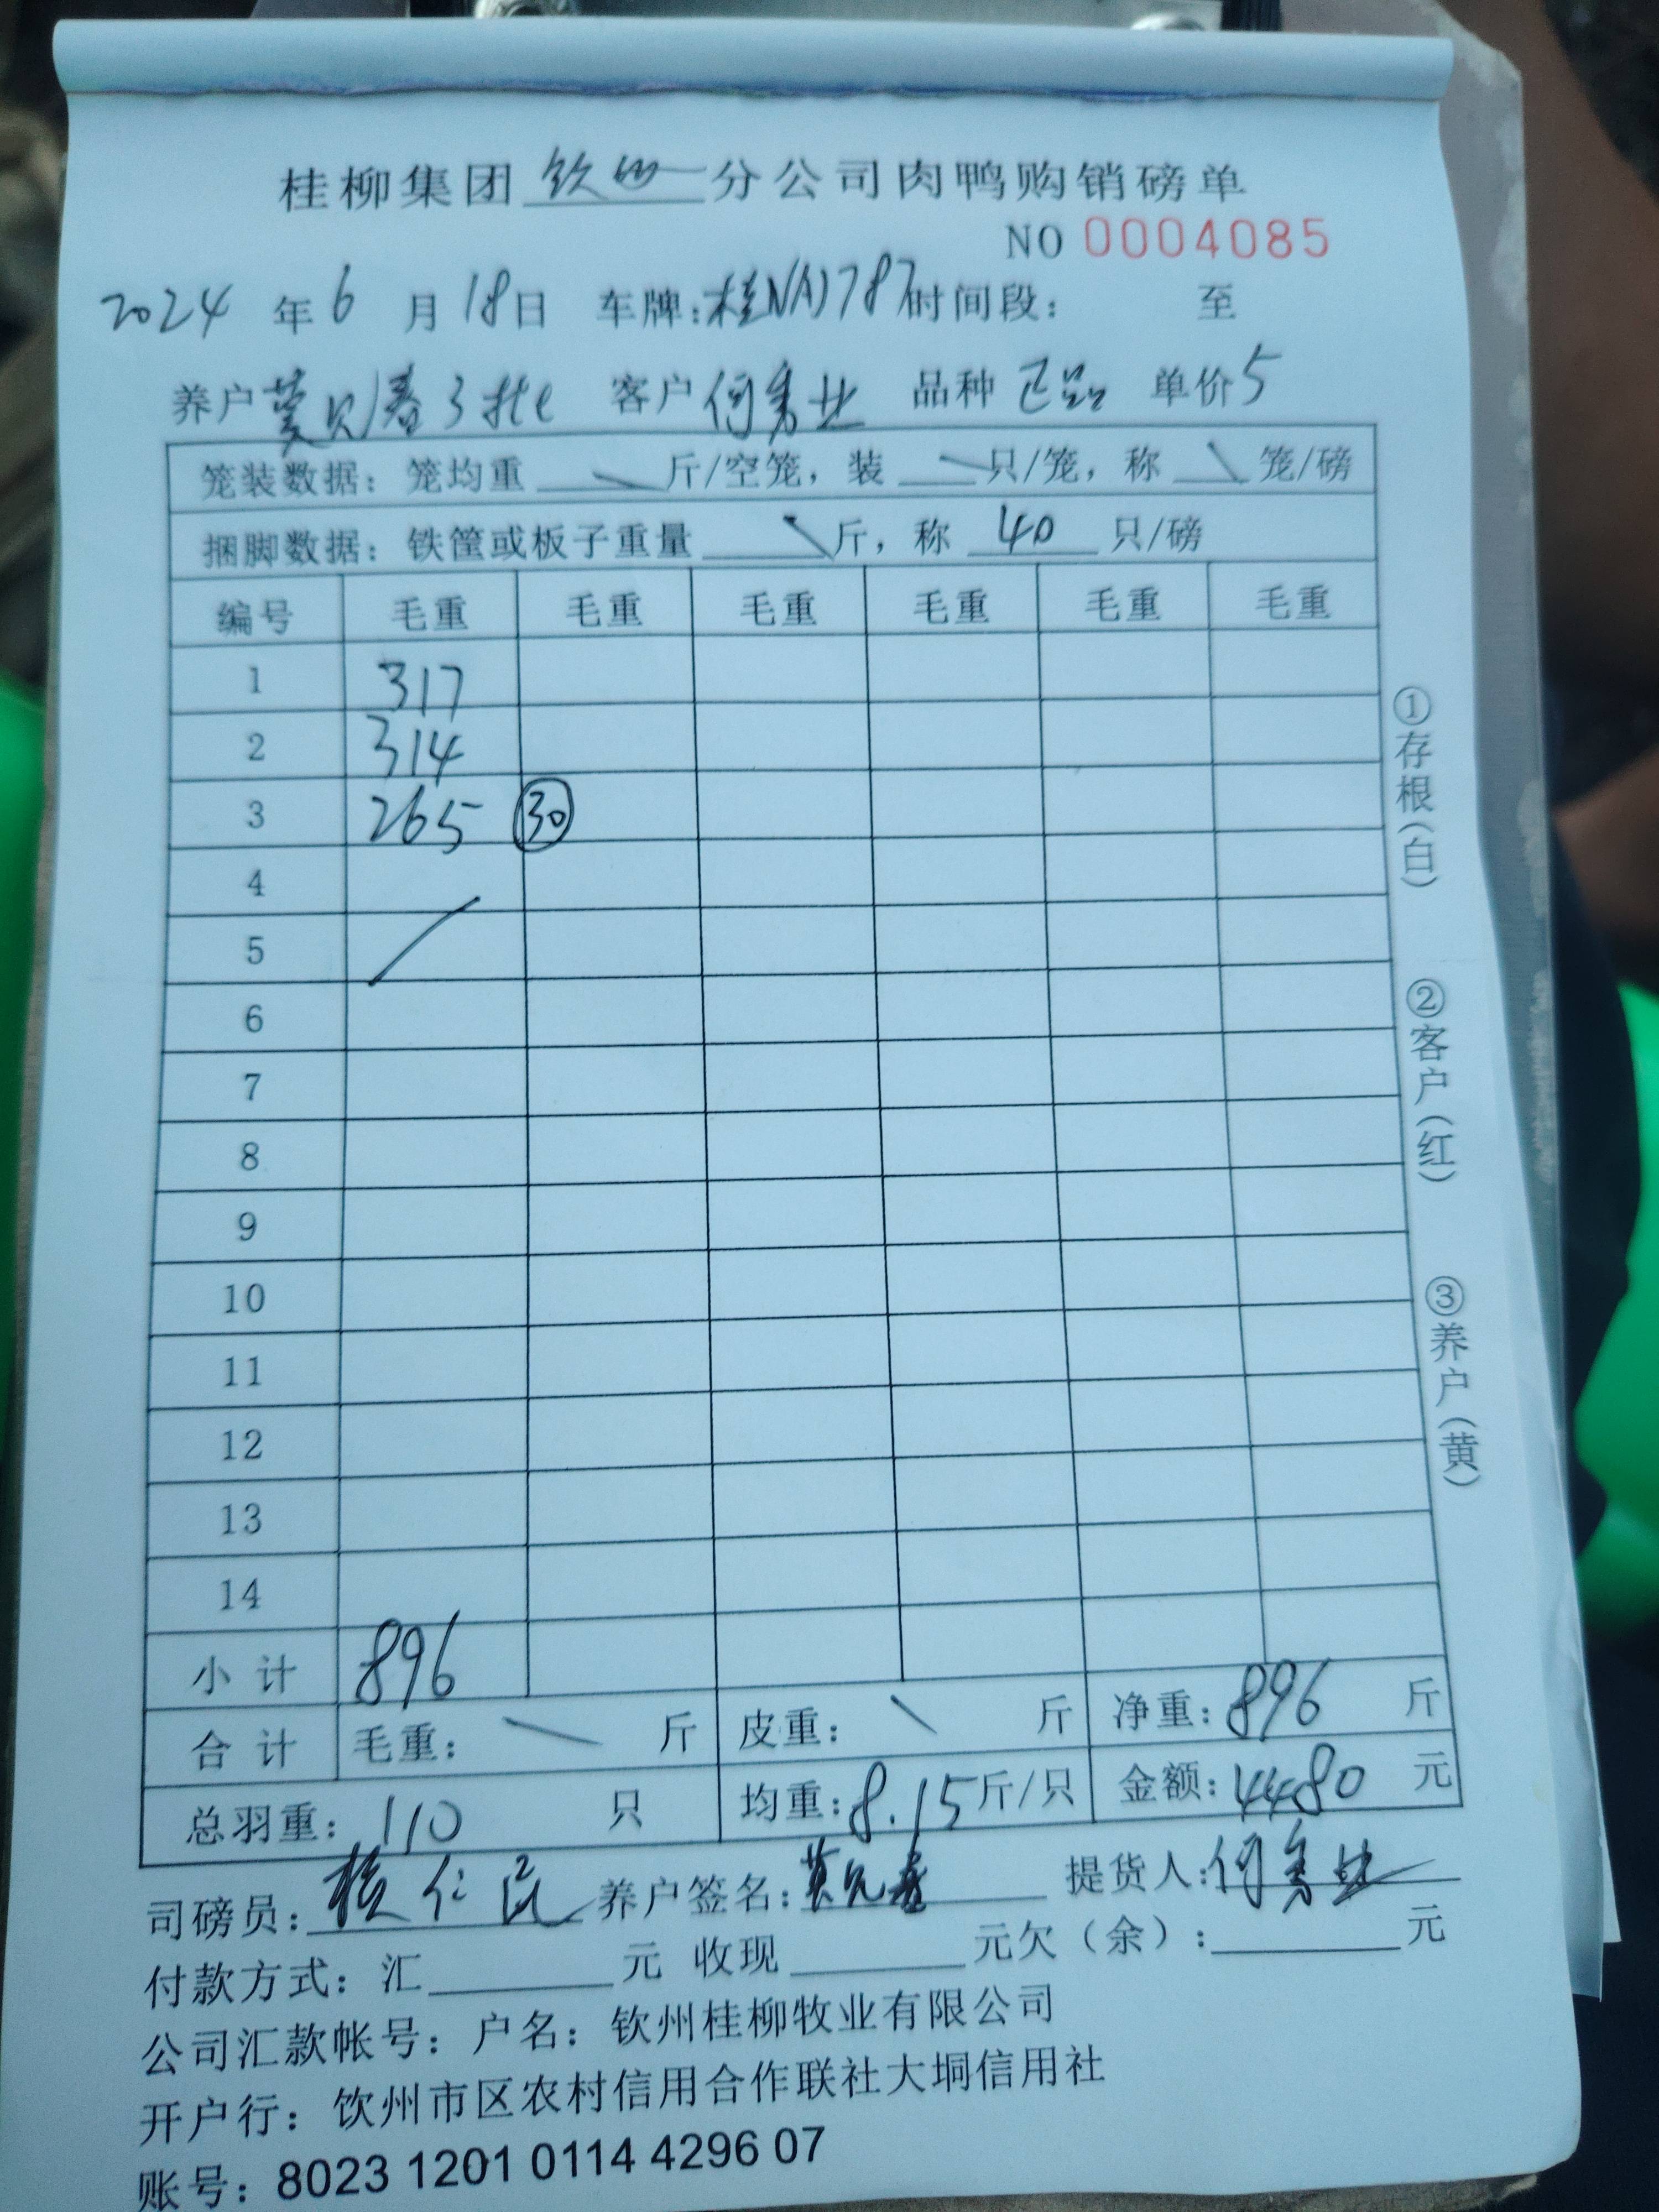 桂柳集团钦州分公司肉鸭购销磅单
NO 0004085
2024年6月18日 车牌:桂NAD787时间段: 至
养户 春3批 客户何秀业 品种 正品 单价5
笼装数据: 笼均重 斤/空笼, 装 只/笼, 称 笼/磅
捆脚数据: 铁筐或板子重量 斤, 称 40 只/磅
编号 毛重 毛重 毛重 毛重 毛重 毛重
1 317
2 314
3 265 ㉚
4
5
6
7
8
9
10
11
12
13
14
小计 896
合计 毛重: 斤 皮重: 斤 净重: 896 斤
总羽重: 110 只 均重: 8.15斤/只 金额: 4480 元
司磅员: 仁 养户签名: 春 提货人:何秀业
付款方式: 汇 元 收现 元欠(余): 元
公司汇款帐号: 户名: 钦州桂柳牧业有限公司
开户行: 钦州市区农村信用合作联社大垌信用社
账号: 8023 1201 0114 4296 07
①存根(白)
②客户(红)
③养户(黄)